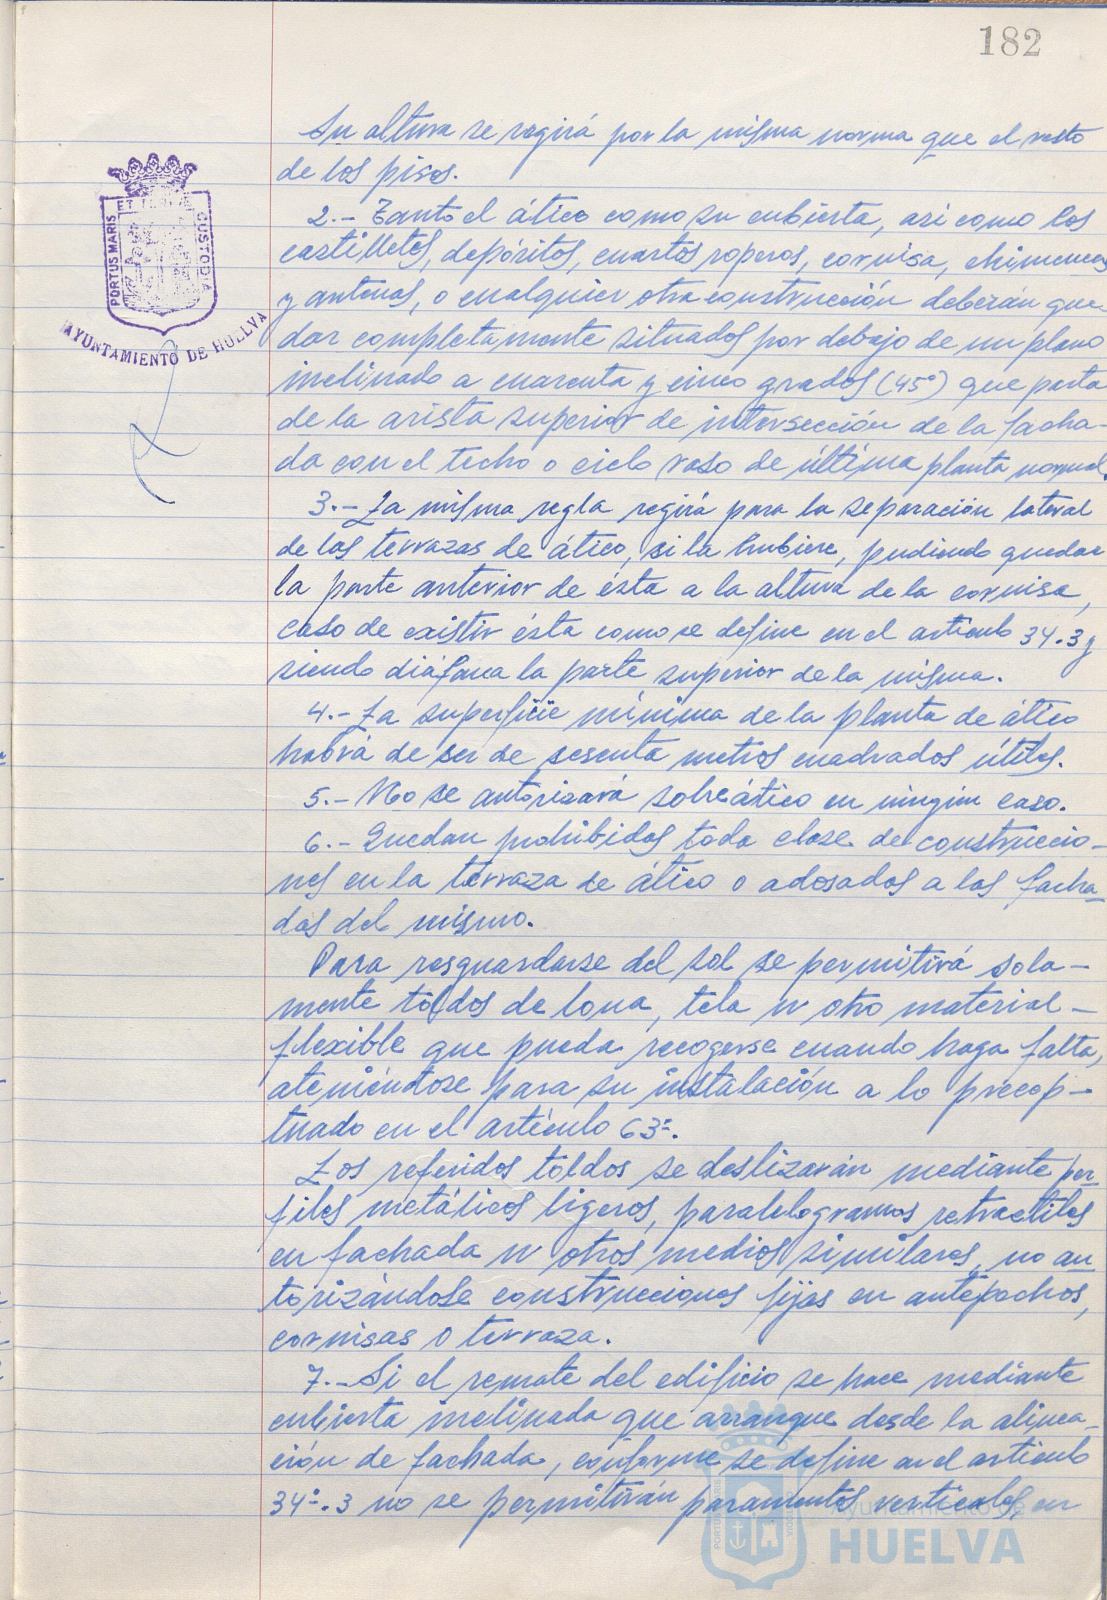 182
Su altura se regirá por la misma norma que el resto
de los pisos.
2.- Tanto el ático como su cubierta, asi como los
castilletes, depósitos, cuartos roperos, cornisa, chimeneas
y antenas, o cualquier otra construcción deberán que-
dar completamente situados por debajo de un plano
inclinado a cuarenta y cinco grados (45º) que parta
de la arista superior de intersección de la facha-
da con el techo o cielo raso de última planta normal.
3.- La misma regla regirá para la separación lateral
de las terrazas de ático, si la hubiere, pudiendo quedar
la parte anterior de ésta a la altura de la cornisa,
caso de existir ésta como se define en el artículo 34.3 y
siendo diáfana la parte superior de la misma.
4.- La superficie mínima de la planta de ático
habrá de ser de sesenta metros cuadrados útiles.
5.- No se autorizará sobreático en ningún caso.
6.- Quedan prohibidos toda clase de construccio-
nes en la terraza de ático o adosados a las facha-
das del mismo.
Para resguardarse del sol se permitirá sola-
mente toldos de lona, tela u otro material-
flexible que pueda recogerse cuando haga falta,
ateniéndose para su instalación a lo precep-
tuado en el artículo 63º.
Los referidos toldos se deslizarán mediante per-
files metálicos ligeros, paralelogramos retractiles
en fachada u otros medios similares, no au-
torizándose construcciones fijas en antepechos,
cornisas o terraza.
7.- Si el remate del edificio se hace mediante
cubierta inclinada que arranque desde la alinea-
ción de fachada, conforme se define en el artículo
34º.3 no se permitirán paramentos verticales, en
PORTUS MARIS
ET TERRE
CUSTODIA
AYUNTAMIENTO DE HUELVA
Ayuntamiento de
HUELVA